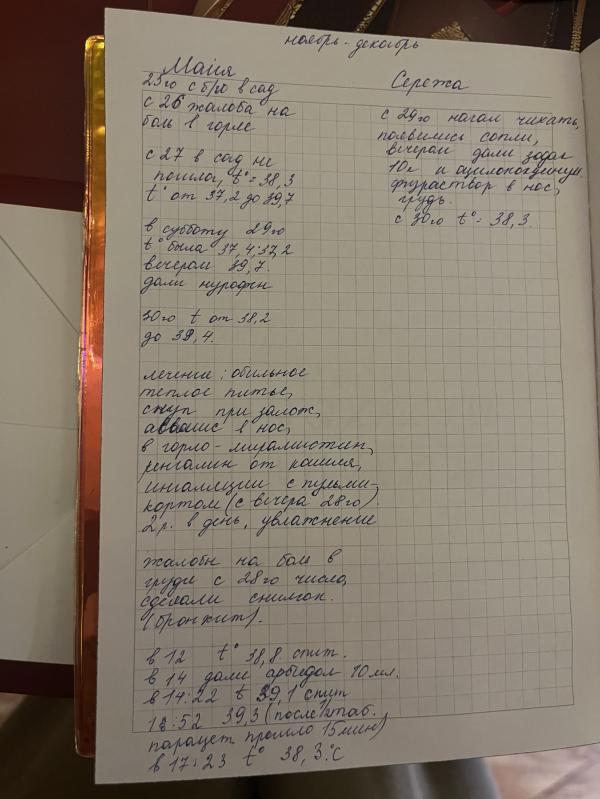 ноябрь - декабрь
Майя
25го с б/о в сад
с 26 жалоба на
боль в горле
с 27 в сад не
пошла, t°= 38,3
t° от 37,2 до 39,7
в субботу 29го
t° была 37,4; 37,2
вечером 39,7.
дали нурофен
30го t от 38,2
до 39,4.
лечение: обильное
теплое питье,
снуп при залож,
аквалис в нос,
в горло - мирамистин,
ренгалин от кашля,
ингаляции с пульми-
кортом (с вечера 28го).
2 р. в день, увлажнение
жалобы на боль в
груди с 28го числа,
сделали снимок.
(бронхит).
в 12 t° 38,8 спит.
в 14 дали арбидол 10 мл.
в 14:22 t 39,1 спит
16:52 39,3 (после 1 таб.
парацет прошло 15 мин)
в 17:23 t° 38,3°С
Сережа
с 29го начал чихать,
появились сопли,
вечером дали
10г и
в нос,
грудь.
с 30го t°= 38,3.